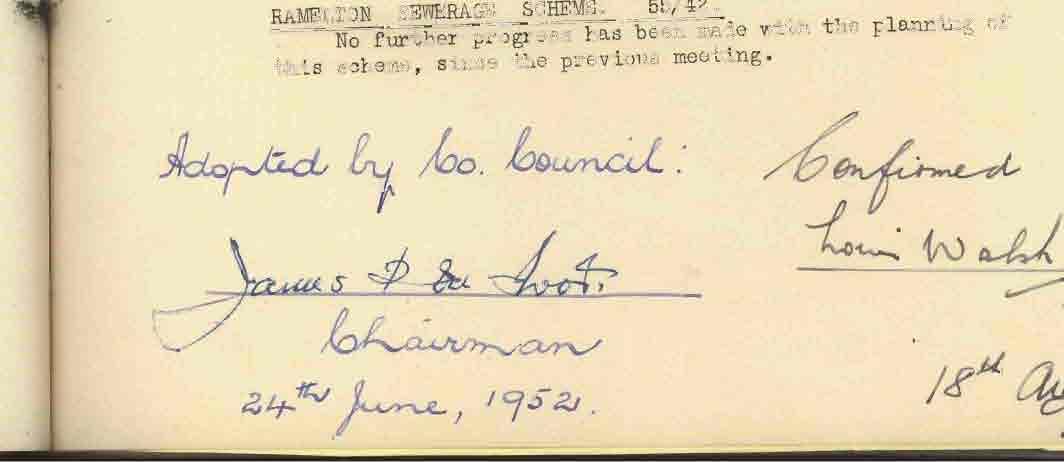 RAMELTON SEWERAGE SCHEME. 55/42.
No further progress has been made with the planning of
this scheme, since the previous meeting.
Adopted by Co. Council:
Confirmed
Louis Walsh
James D
Chairman
24th June, 1952.
18th Aug